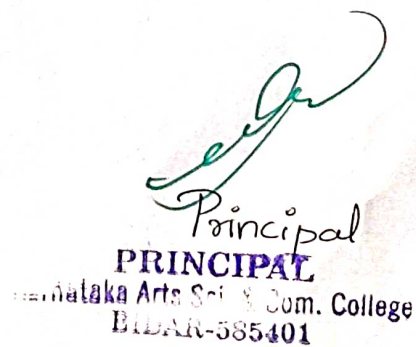 Principal
PRINCIPAL
Arts Sci. & Com. College
BIDAR-585401